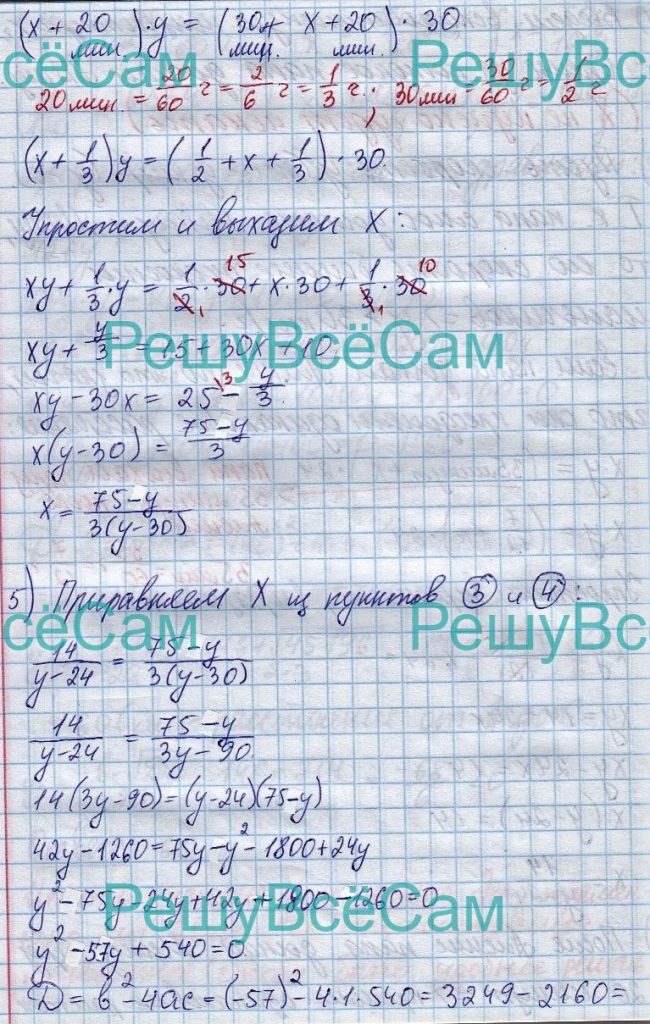 (x + 20 мин)·y = (30 мин. + x + 20 мин.)·30
сёСам РешуВс
20 мин. = 20/60 г = 2/6 г = 1/3 г.; 30 мин = 30/60 г = 1/2 г
(x + 1/3)y = (1/2 + x + 1/3)·30.
Упростим и выхадим X:
xy + 1/3·y = 1/2·30 15 + x·30 + 1/3·30 10
xy + y/3 = 15 + 30x + 10
РешуВсёСам
xy - 30x = 25\3 - y/3.
x(y-30) = 75-y/3
x = 75-y/3(y-30)
5) Приравняем X из пунктов ③ и ④:
сёСам РешуВсё
14/y-24 = 75-y/3(y-30)
14/y-24 = 75-y/3y-90.
14(3y-90)=(y-24)(75-y)
42y-1260=75y-y²-1800+24y
y²-75y-24y+42y+1800-1260=0
РешуВсёСам
y²-57y+540=0
D = b²-4ac = (-57)²-4·1·540 = 3249-2160=